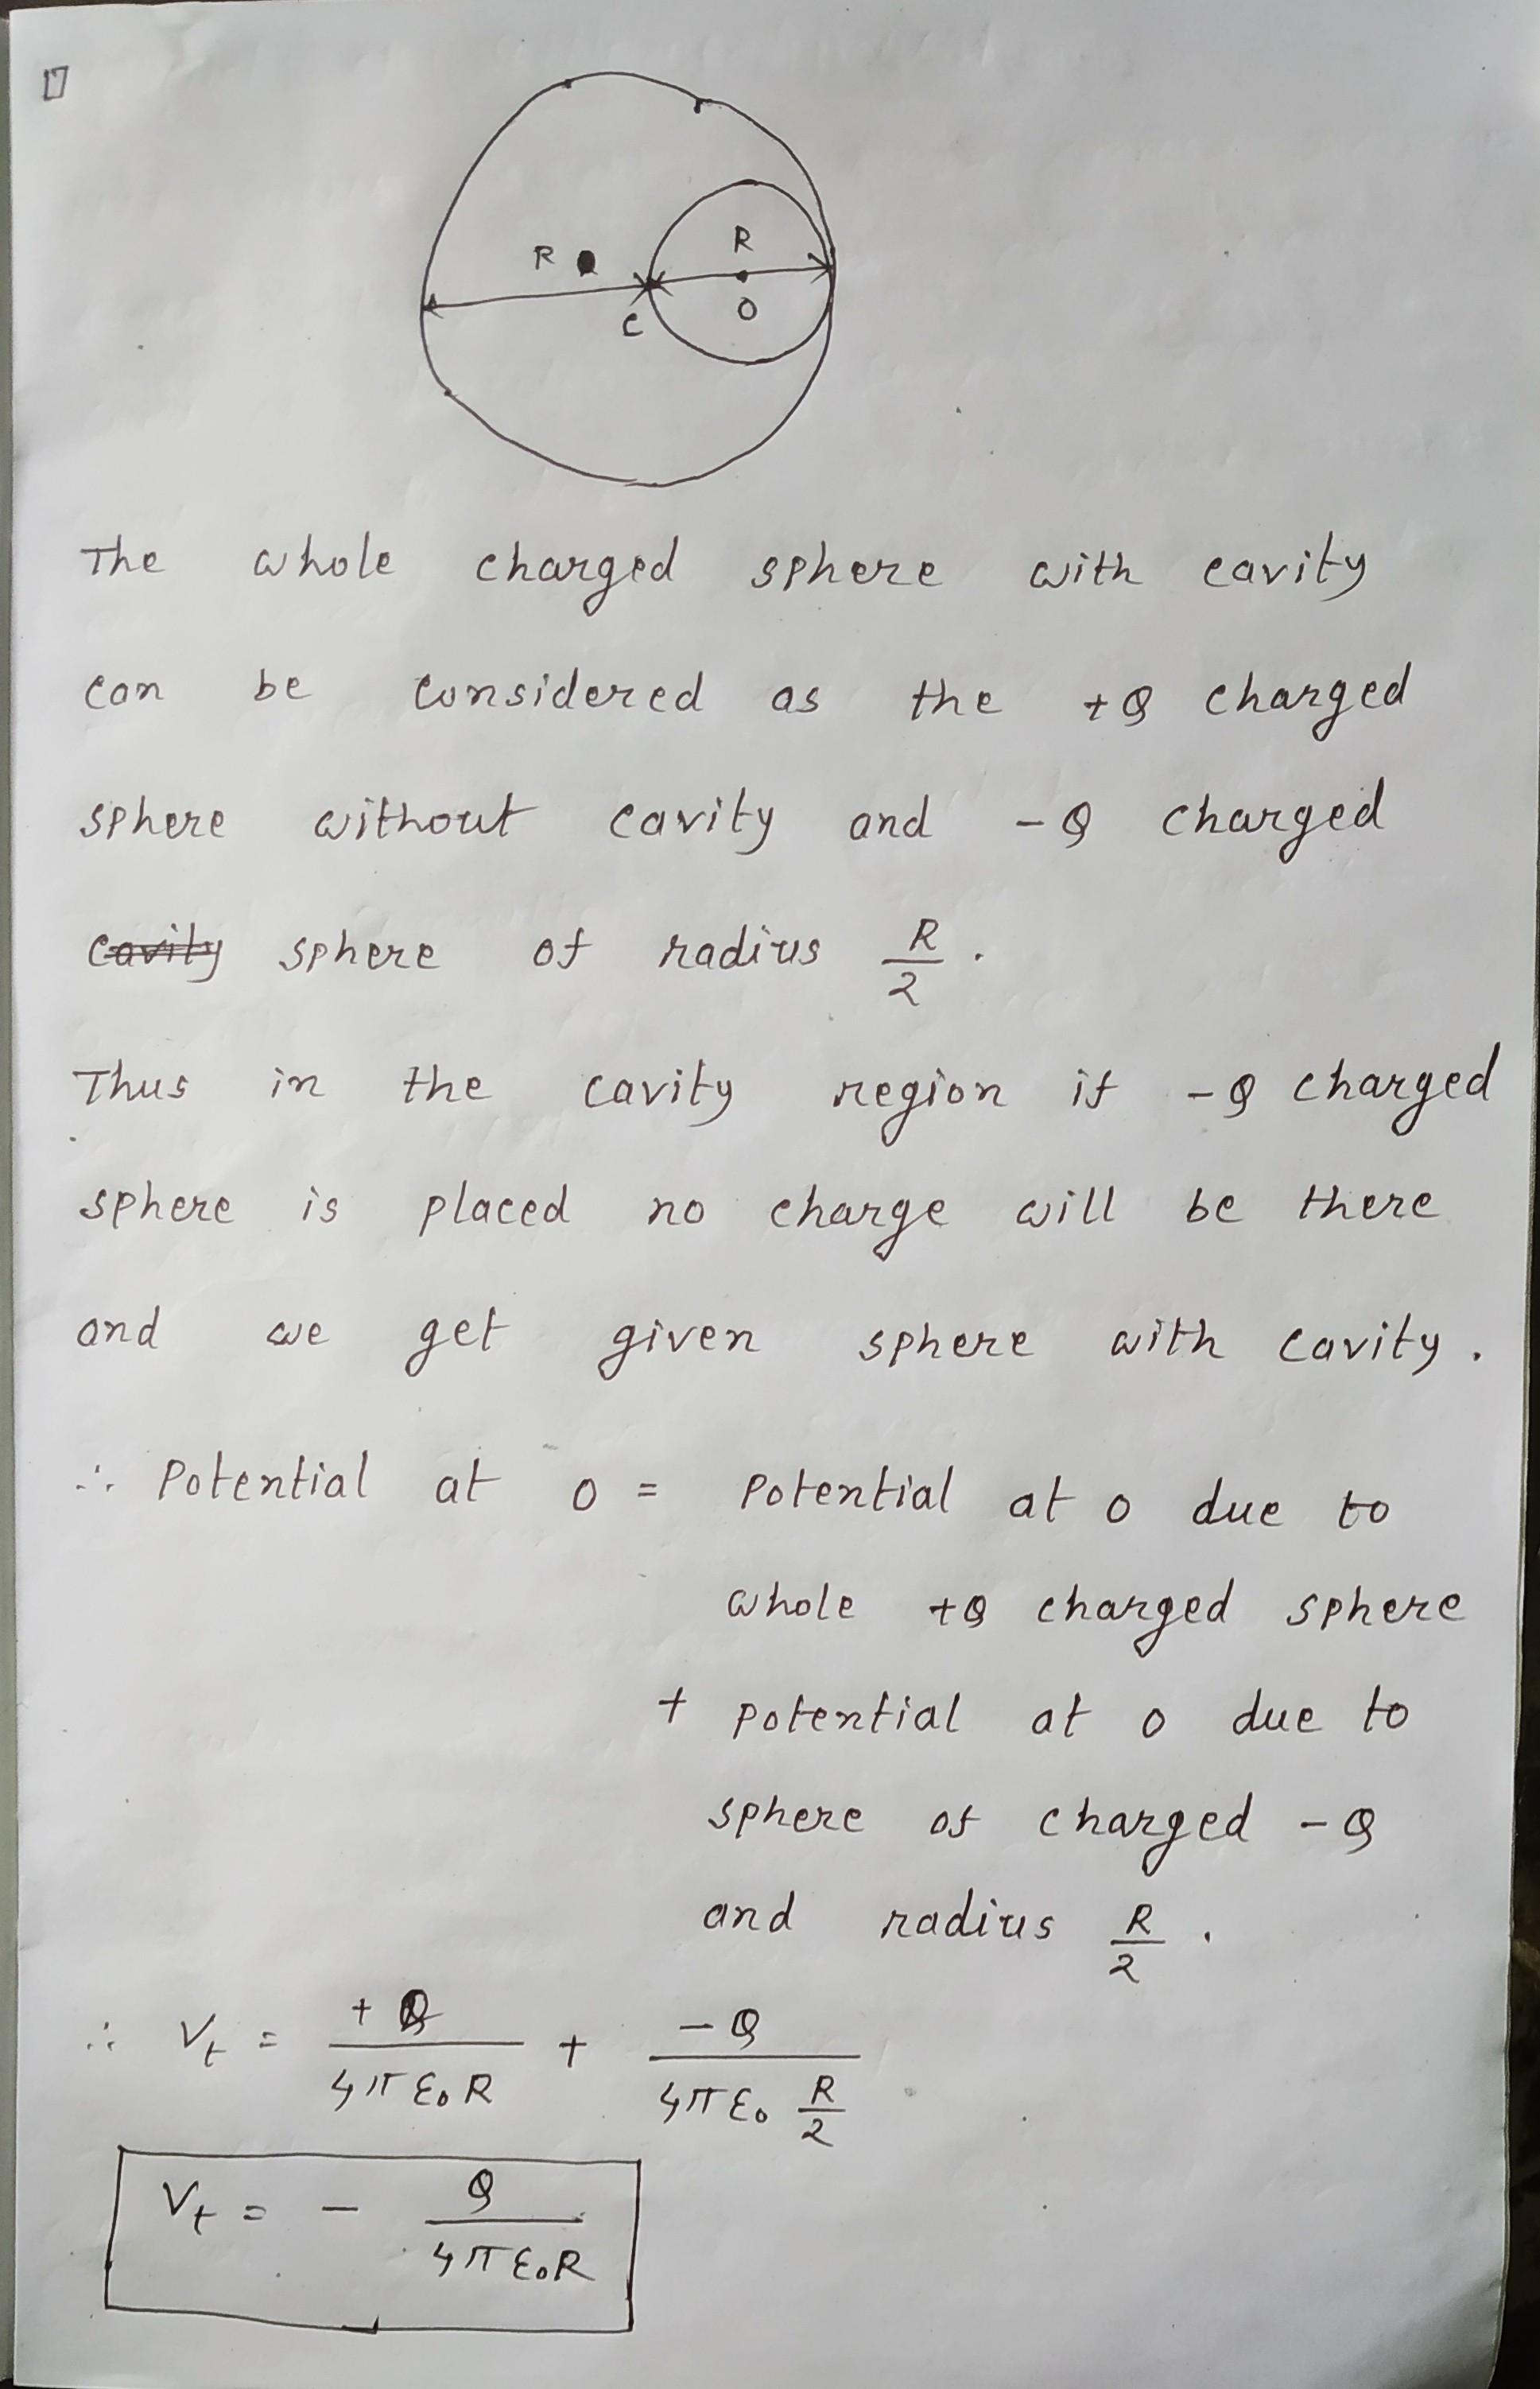 17
R
R
C
O
The whole charged sphere with cavity
can be considered as the +Q charged
sphere without cavity and -Q charged
cavity sphere of radius R/2.
Thus in the cavity region if -Q charged
sphere is placed no charge will be there
and we get given sphere with cavity.
∴ Potential at O = Potential at O due to
whole +Q charged sphere
+ potential at O due to
sphere of charged -Q
and radius R/2.
∴ Vt = +Q/4πε₀R + -Q/4πε₀ R/2
Vt = - Q/4πε₀R